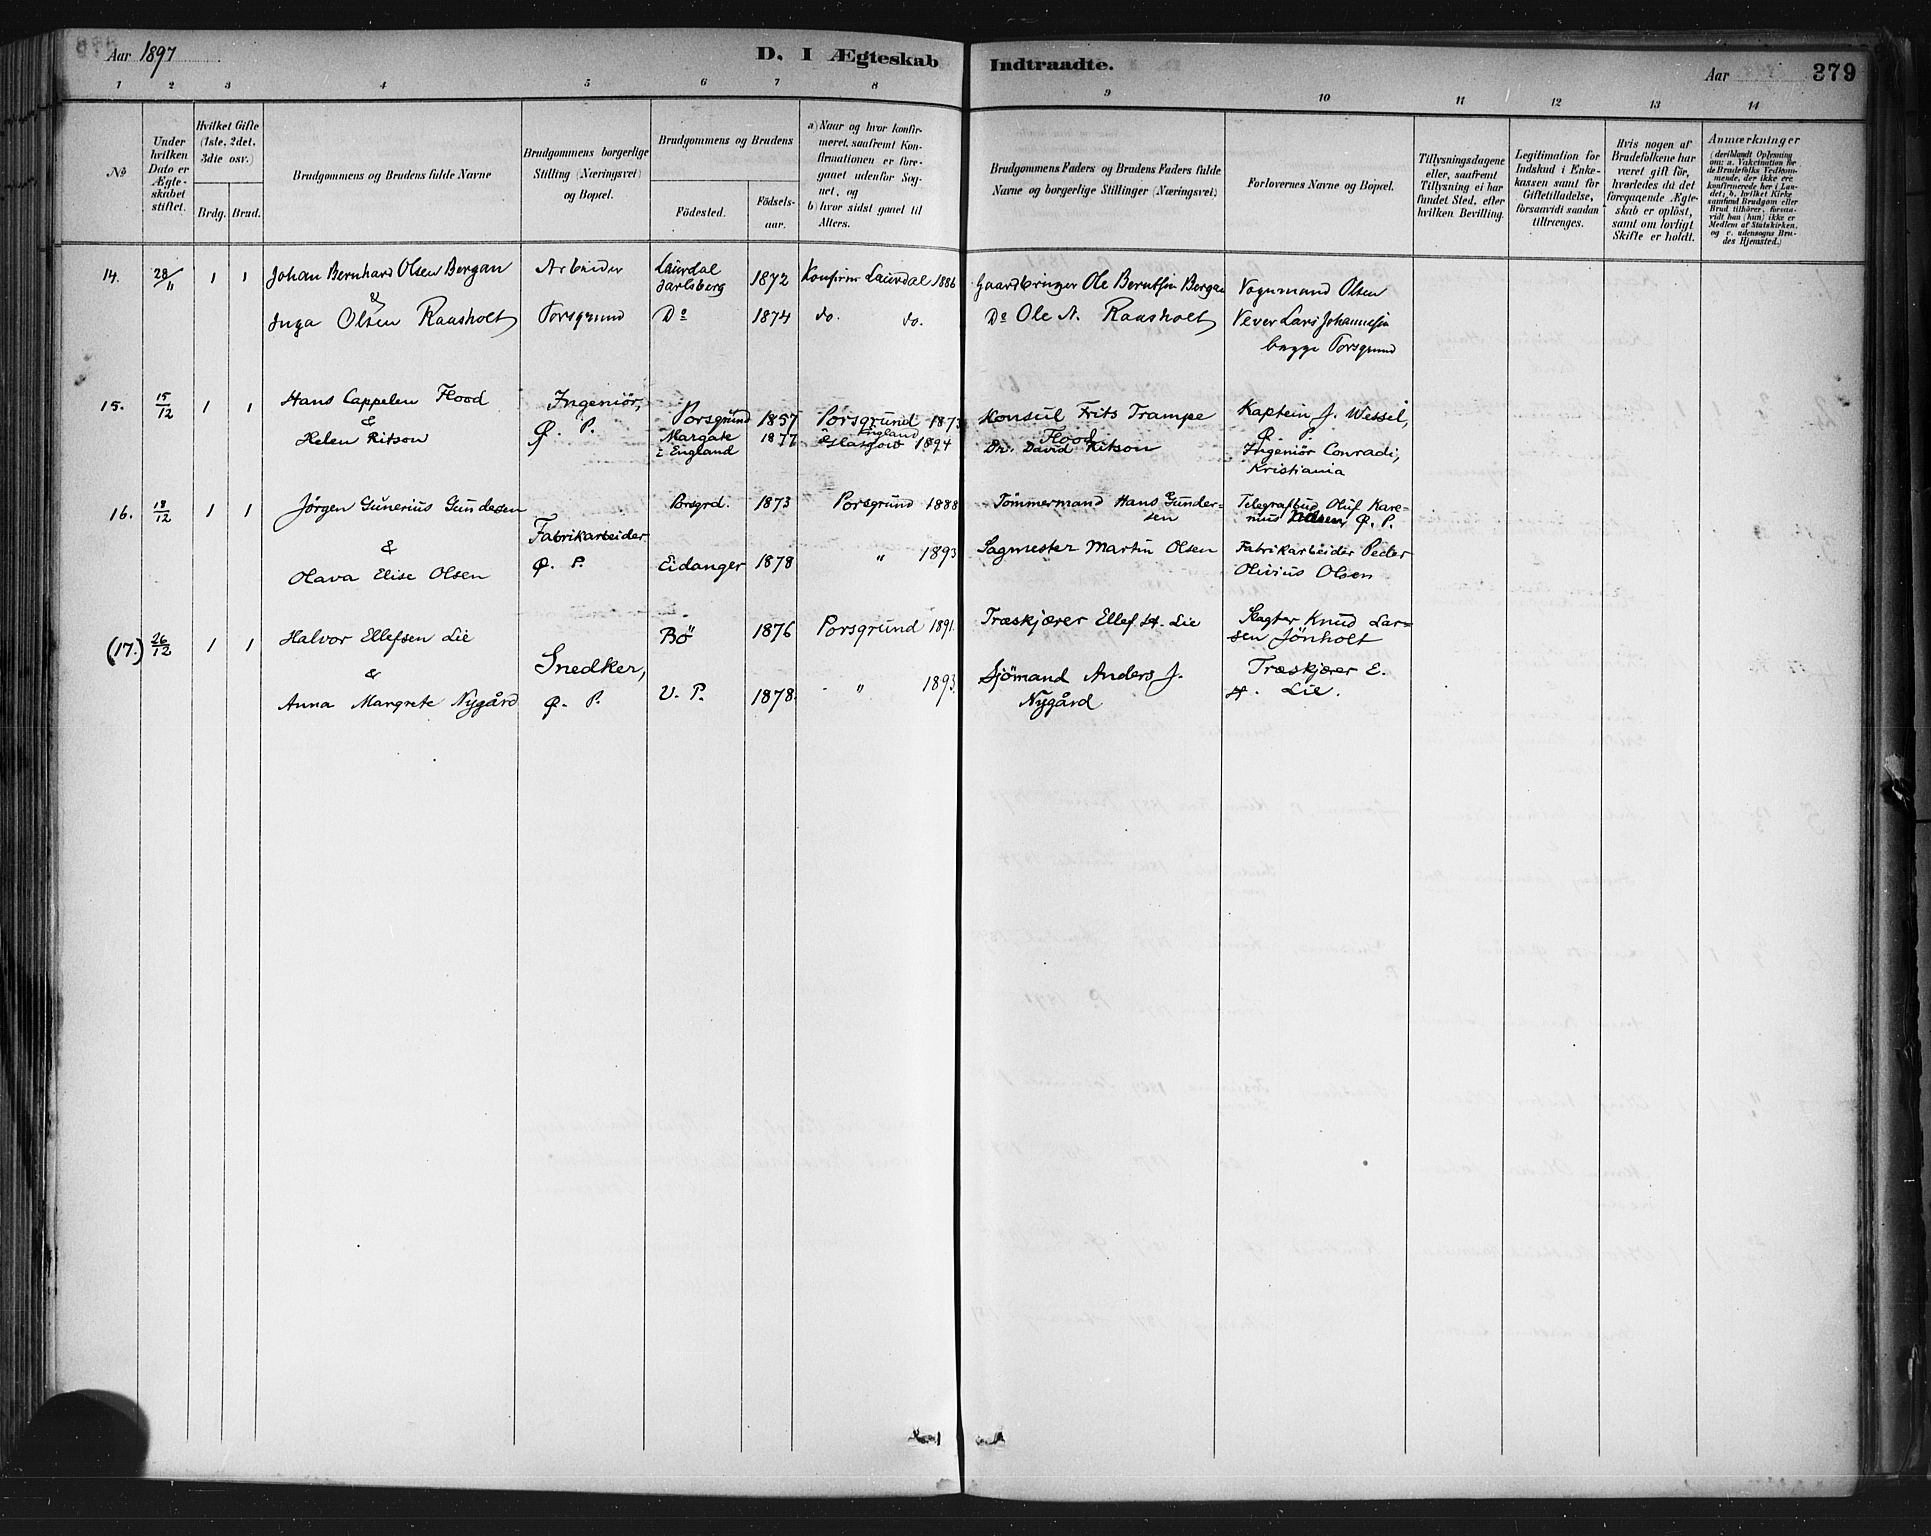 Aar 1897
D. I Ægteskab Indtraadte.
Aar 379
1 2 3 4 5 6 7 8 9 10 11 12 13 14
No
Under hvilken Dato er Ægteskabet stiftet.
Hvilket Gifte (1ste, 2det, 3die osv.)
Brdg. Brud.
Brudgommens og Brudens fulde Navne
Brudgommens borgerlige Stilling (Næringsvei) og Bopæl.
Brudgommens og Brudens
Födested.
Födselsaar.
a) Naar og hvor konfirmeret, saafremt Konfirmationen er foregaaet udenfor Sognet, og
b) hvor sidst gaaet til Alters.
Brudgommens Faders og Brudens Faders fulde Navne og borgerlige Stillinger (Næringsvei)
Forlovernes Navne og Bopæl.
Tillysningsdagene eller, saafremt Tillysning ei har fundet Sted, efter hvilken Bevilling.
Legitimation for Indskud i Enkekassen samt for Giftetilladelse, forsaavidt saadan tiltrænges.
Hvis nogen af Brudefolkene har været gift för, hvorledes da det foregaaende Ægteskab er oplöst, samt om lovligt Skifte er holdt.
Anmærkninger
(deriblandt Oplysning om: a. Vakcination for de Brudefolks Vedkommende, der ikke ere konfirmerede her i Landet; b. hvilket Kirkesamfund Brudgom eller Brud tilhörer, forsaavidt han (hun) ikke er Medlem af Statskirken, og c. udensogns Brudes Hjemsted.)
14. 28/11 1 1 Johan Bernhard Olsen Bergan Arbeider Laurdal Jarlsberg 1872 Konfirm Laurdal 1886 Gaardbruger Ole Berntsen Bergan Vognmand Olsen
&
Inga Olsen Raasholt Porsgrund Do 1874 do. do. Do Ole A. Raasholt Vever Lars Johannesen
begge Porsgrund
15. 15/12 1 1 Hans Cappelen Flood Ingeniör, Porsgrund 1857 Porsgrund 1873 Konsul Frits Trampe Flood Kaptein J. Wessel,
& Ø. P. Ø. P.
Helen Ritson Margate i England 1877 Glasgow England 1894 Dr. David Ritson Ingeniör Conradi,
Kristiania
16. 18/12 1 1 Jörgen Gunerius Gundesen Porsgrd. 1873 Porsgrund 1888 Tömmermand Hans Gundersen Telegrafbud Oluf Karenius Ø. P.
& Fabrikarbeider
Olava Elise Olsen Ø. P. Eidanger 1878 " 1893 Sagmester Martin Olsen Fabrikarbeider Peder
Olivius Olsen
(17.) 26/12 1 1 Halvor Ellefsen Lie Bö 1876 Porsgrund 1891. Træskjærer Ellef H. Lie Slagter Knud Larsen Jönholt
& Snedker,
Anna Margrete Nygård Ø. P. V. P. 1878. " 1893. Sjömand Anders J. Træskjærer E.
Nygård H. Lie.